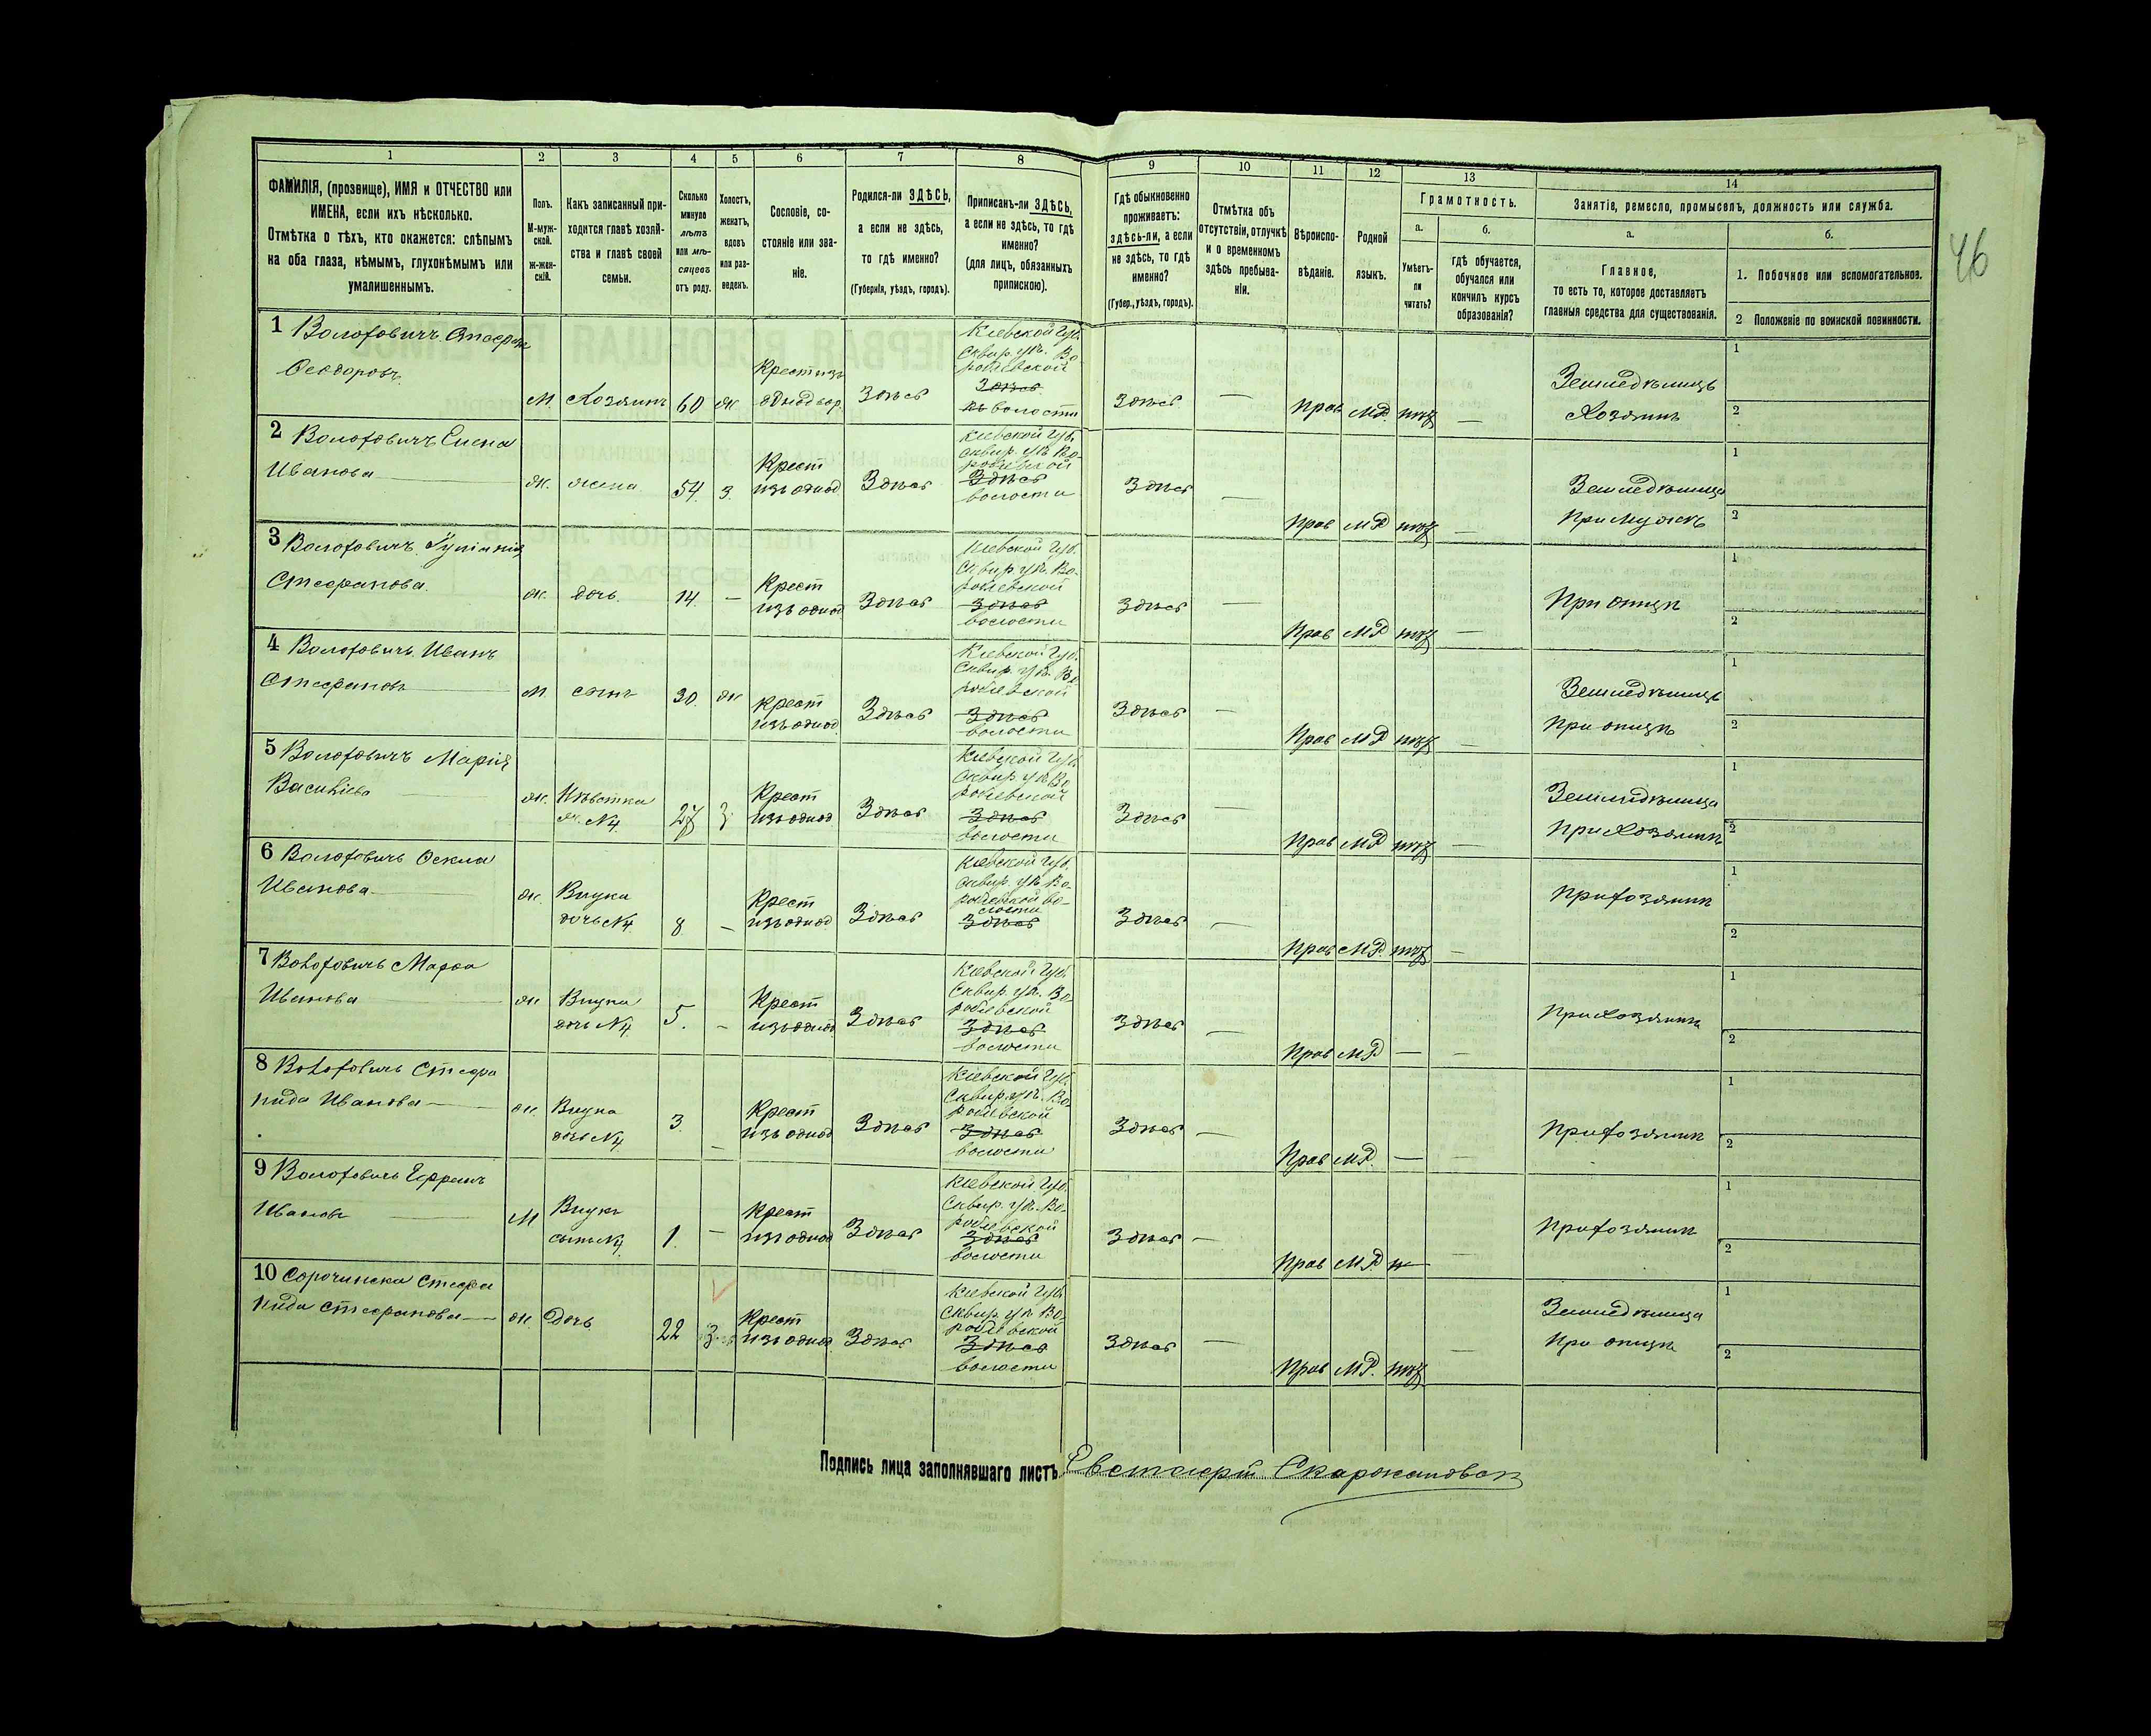 46
1 2 3 4 5 6 7 8 9 10 11 12 13 14
ФАМИЛІЯ, (прозвище), ИМЯ и ОТЧЕСТВО или
ИМЕНА, если ихъ нѣсколько.
Отмѣтка о тѣхъ, кто окажется: слѣпымъ
на оба глаза, нѣмымъ, глухонѣмымъ или
умалишеннымъ.
Полъ.
М-муж-
ской.
ж-жен-
скій.
Какъ записанный при-
ходится главѣ хозяй-
ства и главѣ своей
семьи.
Сколько
минуло
лѣтъ
или мѣ-
сяцевъ
отъ роду.
Холостъ,
женатъ,
вдовъ
или раз-
веденъ.
Сословіе, со-
стояніе или зва-
ніе.
Родился-ли ЗДѢСЬ,
а если не здѣсь,
то гдѣ именно?
(Губернія, уѣздъ, городъ).
Приписанъ-ли ЗДѢСЬ,
а если не здѣсь, то гдѣ
именно?
(для лицъ, обязанныхъ
припискою).
Гдѣ обыкновенно
проживаетъ:
здѣсь-ли, а если
не здѣсь, то гдѣ
именно?
(Губер., уѣздъ, городъ).
Отмѣтка объ
отсутствіи, отлучкѣ
и о временномъ
здѣсь пребыва-
ніи.
Вѣроиспо-
вѣданіе.
Родной
языкъ.
Грамотность.
а.
Умѣетъ-
ли
читать?
б.
гдѣ обучается,
обучался или
кончилъ курсъ
образованія?
Занятіе, ремесло, промыселъ, должность или служба.
а.
Главное,
то есть то, которое доставляетъ
главныя средства для существованія.
б.
1. Побочное или вспомогательное.
2 Положеніе по воинской повинности.
1 Волотовичъ Стефанъ
Феодоровъ
М. Хозяинъ 60 ж
Крест изъ
однодвор.
Здѣсь
Кіевской губ.
Сквир. уѣ. Во-
робіевской
Здѣсь
волости
Здѣсь — Прав М.Р. нѣт —
Земледѣлецъ
Хозяинъ
1
2
2 Волотовичъ Елена
Иванова
ж. жена 54 з.
Крест
изъ однод
Здѣсь
Кіевской губ.
Сквир. уѣ. Во-
робіевской
Здѣсь
волости
Здѣсь — Прав М.Р нѣт —
Земледѣлица
При мужѣ
1
2
3 Волотовичъ
Стефанова
ж. дочь 14 —
Крест
изъ однод
Здѣсь
Кіевской губ.
Сквир. уѣ. Во-
робіевской
Здѣсь
волости
Здѣсь — Прав М.Р нѣт —
При отцѣ
1
2
4 Волотовичъ Иванъ
Стефановъ
М сынъ 30. ж
Крест
изъ однод
Здѣсь
Кіевской губ.
Сквир. уѣ. Во-
робіевской
Здѣсь
волости
Здѣсь — Прав М.Р нѣт —
Земледѣлецъ
При отцѣ
1
2
5 Волотовичъ Марія
Василіева
ж. Невѣстка
ж. №4. 27 з
Крест
изъ однод
Здѣсь
Кіевской губ.
Сквир. уѣ. Во-
робіевской
Здѣсь
волости
Здѣсь — Прав М.Р нѣт —
Земледѣлица
При Хозяинѣ
1
2
6 Волотовичъ Оекла
Иванова
ж. Внука
дочь №4. 8 —
Крест
изъ однод
Здѣсь
Кіевской губ.
Сквир. уѣ. Во-
робіевской во-
лости
Здѣсь
Здѣсь — Прав М.Р. нѣт —
При хозяинѣ
1
2
7 Волотовичъ Марфа
Иванова
ж Внука
дочь №4. 5. —
Крест
изъ однод
Здѣсь
Кіевской губ.
Сквир. уѣ. Во-
робіевской
Здѣсь
волости
Здѣсь — Прав М.Р — —
При Хозяинѣ
1
2
8 Волотовичъ Стефа
нида Иванова
ж. Внука
дочь №4. 3. —
Крест
изъ однод
Здѣсь
Кіевской губ.
Сквир. уѣ. Во-
робіевской
Здѣсь
волости
Здѣсь — Прав М.Р. — —
При хозяинѣ
1
2
9 Волотовичъ Ефремъ
Ивановъ
М Внукъ
сынъ №4. 1. —
Крест
изъ однод
Здѣсь
Кіевской губ.
Сквир. уѣ. Во-
робіевской
Здѣсь
волости
Здѣсь — Прав М.Р — —
При хозяинѣ
1
2
10 Сорочинска Стефа
нида Стефанова
ж. Дочь 22 з.
Крест
изъ однод
Здѣсь
Кіевской губ.
Сквир. уѣ. Во-
робіевской
Здѣсь
волости
Здѣсь — Прав М.Р. нѣт —
Земледѣлица
При отцѣ
1
2
Подпись лица заполнявшаго листъ